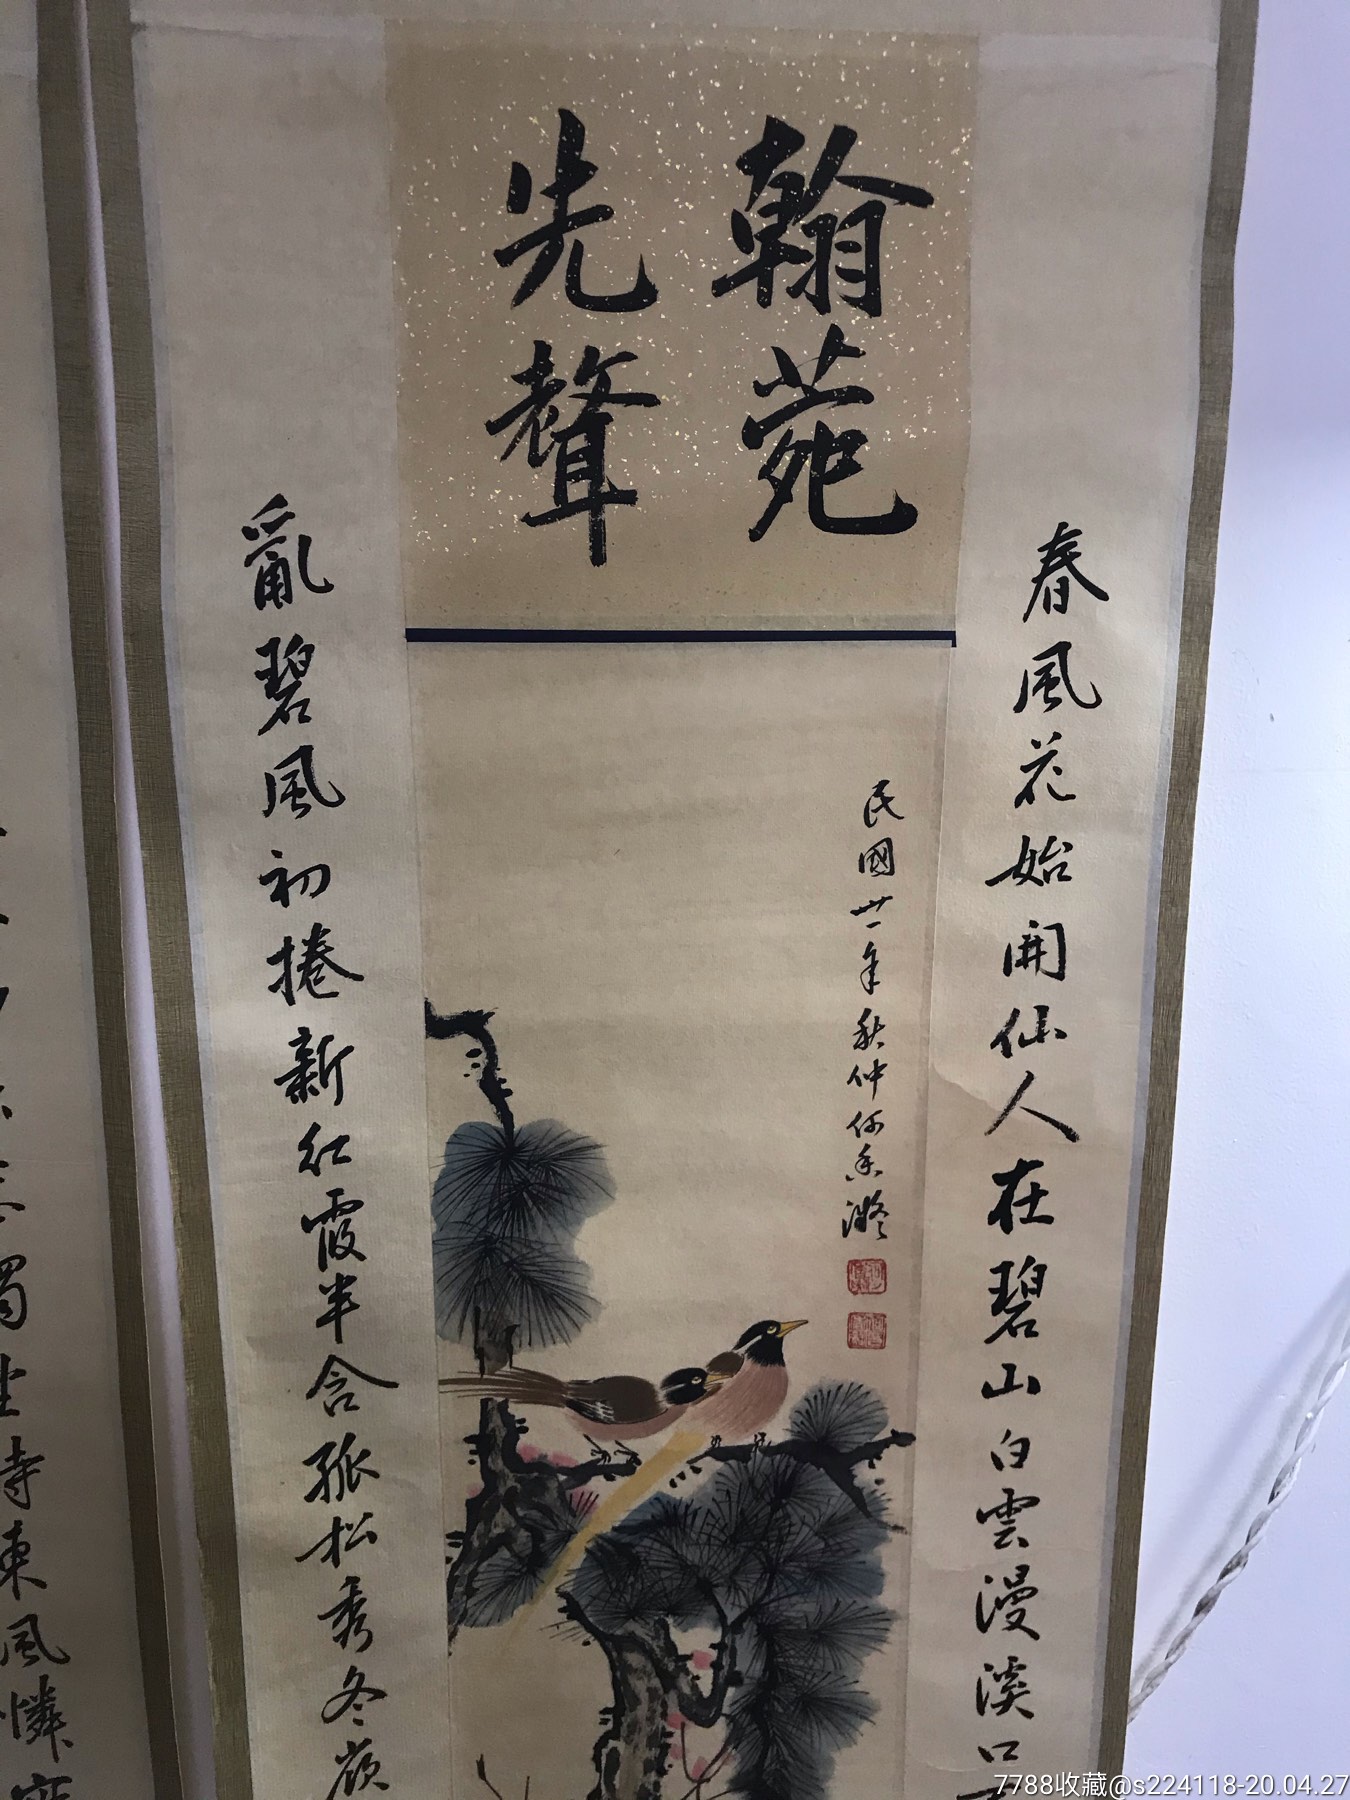 翰苑
先聲
春風花始開仙人在碧山白雲漫溪口
民國卅一年秋仲何香凝
亂碧風初捲新紅霞半含孤松秀冬嶺
寺東風憐
7788收藏@s224118-20.04.27